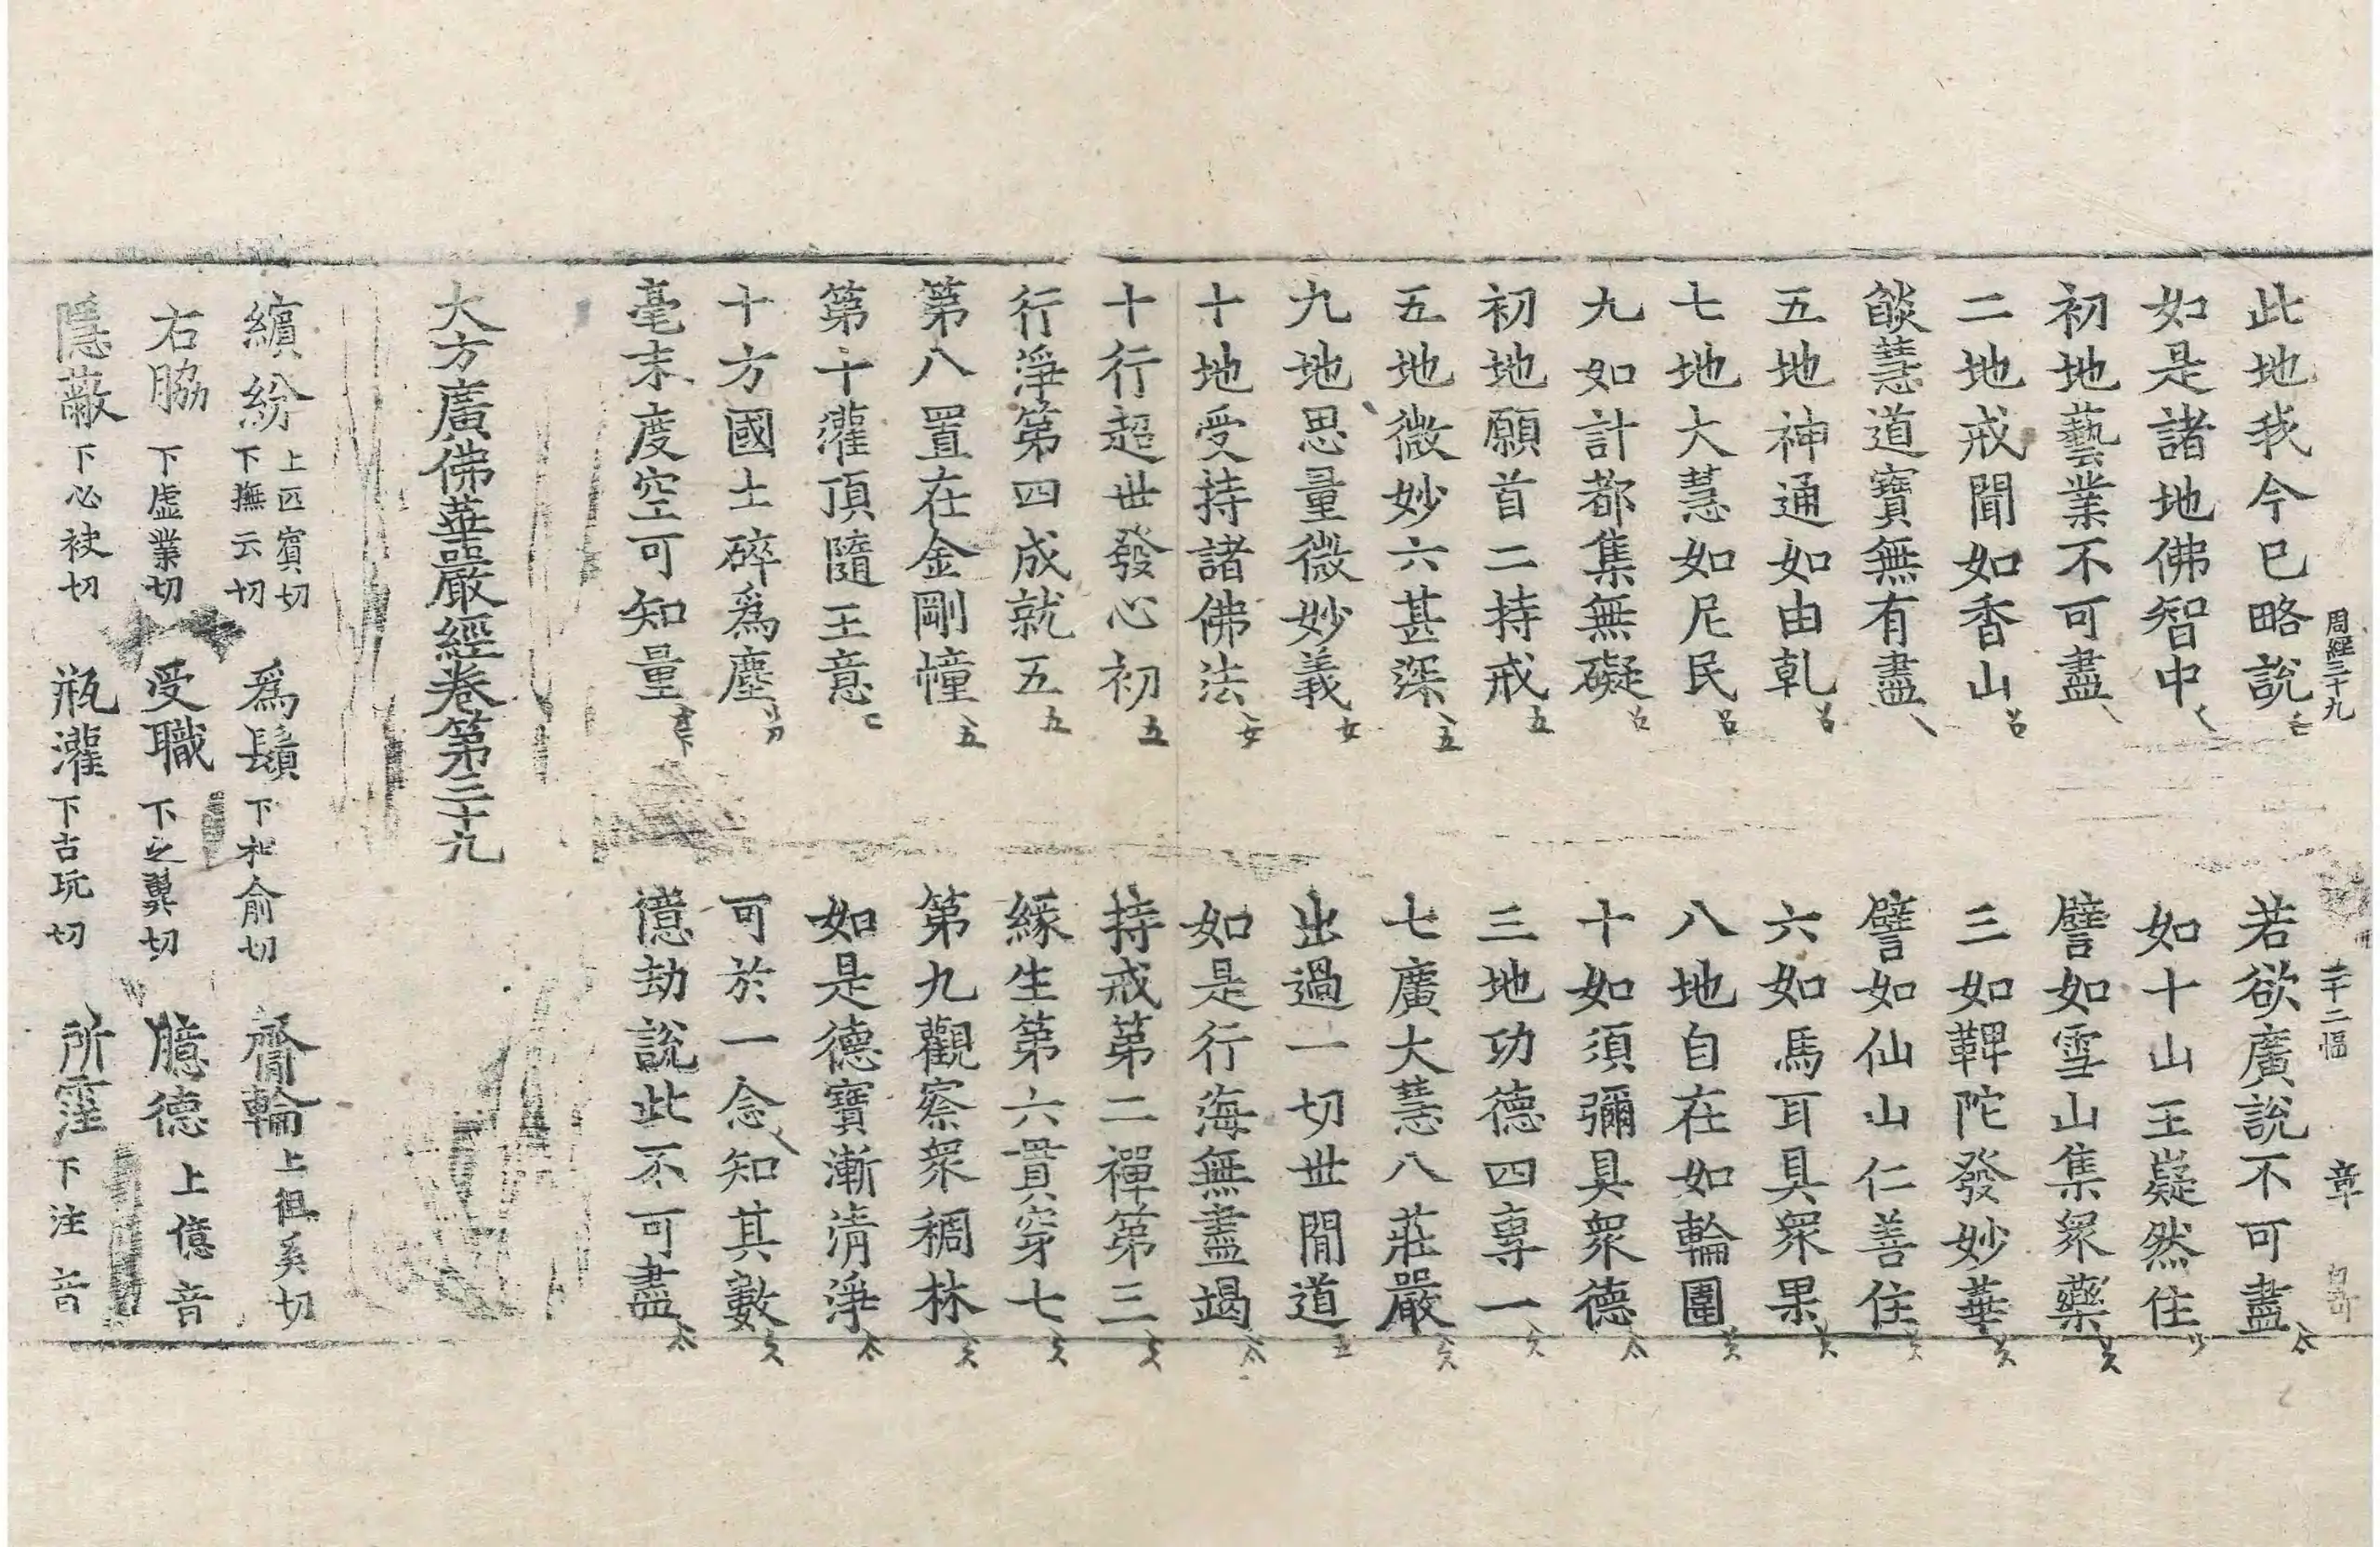 周經三十九 二十二幅 章
此地我今已略說 若欲廣說不可盡
如是諸地佛智中 如十山王嶷然住
初地藝業不可盡 譬如雪山集眾藥
二地戒聞如香山 三如鞞陀發妙華
燄慧道寶無有盡 譬如仙山仁善住
五地神通如由乹 六如馬耳具眾果
七地大慧如尼民 八地自在如輪圍
九如計都集無礙 十如須彌具眾德
初地願首二持戒 三地功德四專一
五地微妙六甚深 七廣大慧八莊嚴
九地思量微妙義 出過一切世閒道
十地受持諸佛法 如是行海無盡竭
十行超世發心初 持戒第二禪第三
行淨第四成就五 緣生第六貫穿七
第八置在金剛幢 第九觀察眾稠林
第十灌頂隨王意 如是德寶漸清淨
十方國土碎爲塵 可於一念知其數
毫末度空可知量 億劫說此不可盡
大方廣佛華嚴經卷第三十九
繽紛 上匹賓切 下撫云切 爲鬚 下相俞切 齎輪 上徂奚切
右脇 下虛業切 受職 下之翼切 臆德 上億音
隱蔽 下必袂切 瓶灌 下古玩切 所霔 下注音